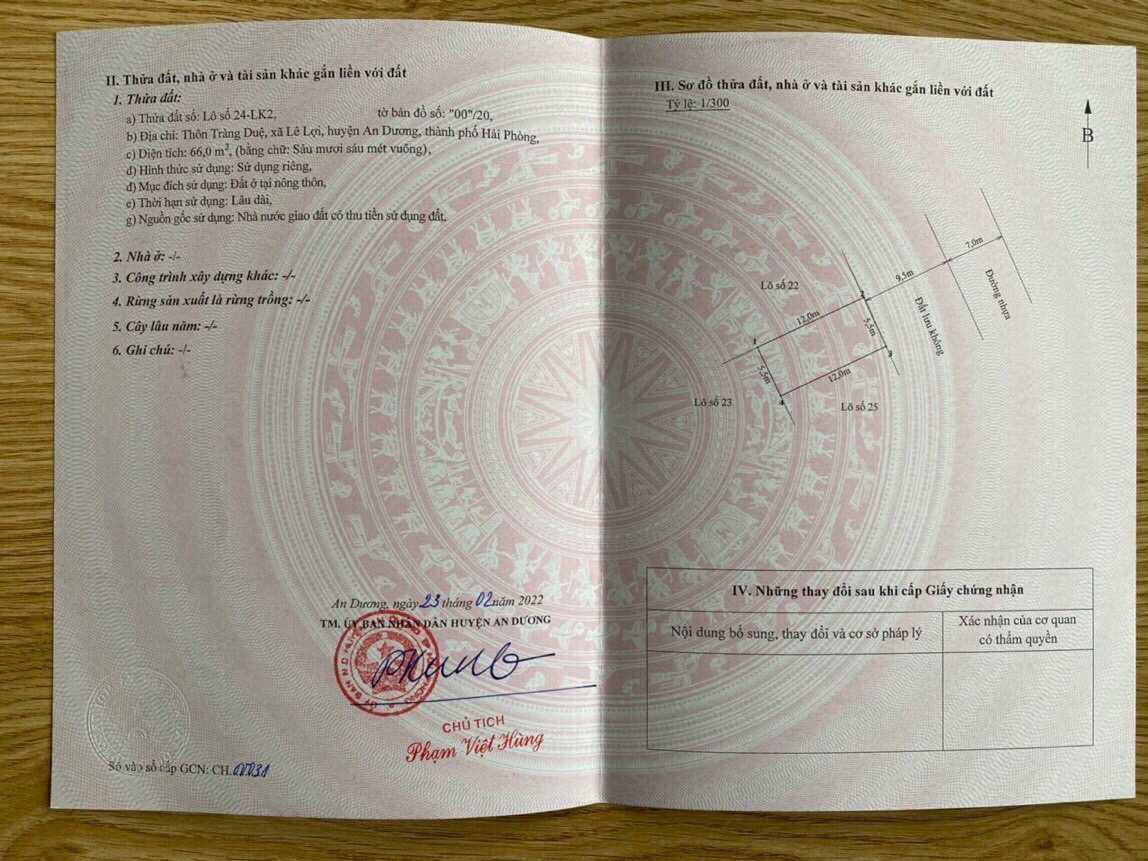 II. Thửa đất, nhà ở và tài sản khác gắn liền với đất
1. Thửa đất:
a) Thửa đất số: Lô số 24-LK2, tờ bản đồ số: "00"/20,
b) Địa chỉ: Thôn Tràng Duệ, xã Lê Lợi, huyện An Dương, thành phố Hải Phòng,
c) Diện tích: 66,0 m², (bằng chữ: Sáu mươi sáu mét vuông),
d) Hình thức sử dụng: Sử dụng riêng,
đ) Mục đích sử dụng: Đất ở tại nông thôn,
e) Thời hạn sử dụng: Lâu dài,
g) Nguồn gốc sử dụng: Nhà nước giao đất có thu tiền sử dụng đất,
2. Nhà ở: -/-
3. Công trình xây dựng khác: -/-
4. Rừng sản xuất là rừng trồng: -/-
5. Cây lâu năm: -/-
6. Ghi chú: -/-
An Dương, ngày 23 tháng 02 năm 2022
TM. ỦY BAN NHÂN DÂN HUYỆN AN DƯƠNG
CHỦ TỊCH
Phạm Việt Hùng
Số vào sổ cấp GCN: CH.00031
III. Sơ đồ thửa đất, nhà ở và tài sản khác gắn liền với đất
Tỷ lệ: 1/300
B
7,0m
9,5m
Đường nhựa
Lô số 22
2
12,0m
5,5m
Đất lưu không
1
3
5,5m
12,0m
4
Lô số 23
Lô số 25
IV. Những thay đổi sau khi cấp Giấy chứng nhận
Nội dung bổ sung, thay đổi và cơ sở pháp lý
Xác nhận của cơ quan
có thẩm quyền